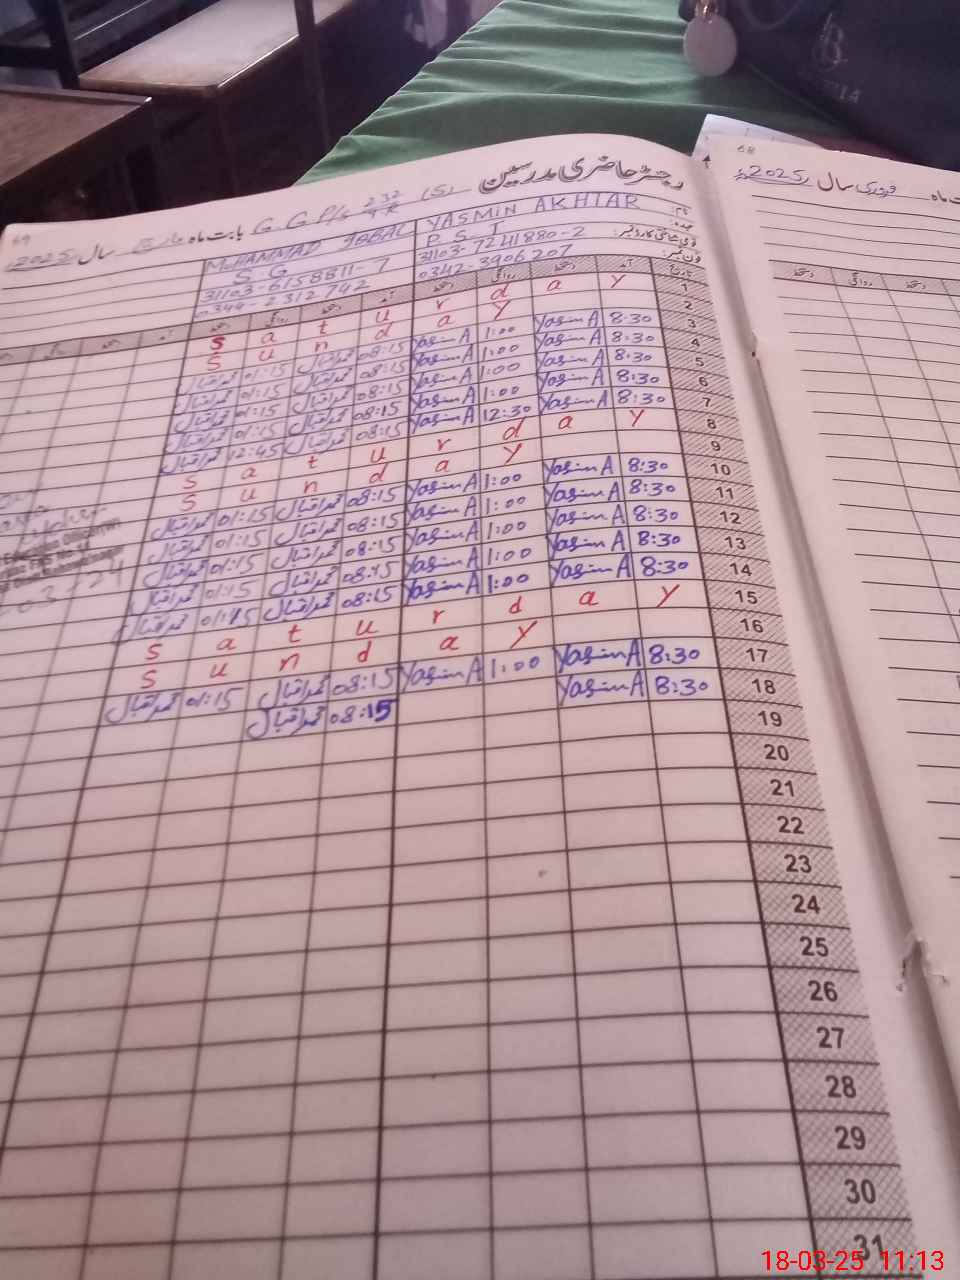 رجسٹر حاضری مدرسین
G G P/S 232 (S) بابت ماہ مارچ سال 2025ء
69
نام:
YASMIN AKHTAR
MUHAMMAD IQBAL
عہدہ:
P S T
S. G
قومی شناختی کارڈ نمبر:
31103-7241880-2
31103-6158811-7
فون نمبر:
0342-3906207
0344-2312742
تاریخ آمد دستخط روانگی دستخط آمد دستخط روانگی دستخط
1 S a t u r d a y
2 S u n d a y
3 8:30 Yasmin A 1:00 Yasmin A 08:15 محمد اقبال 01:15 محمد اقبال
4 8:30 Yasmin A 1:00 Yasmin A 08:15 محمد اقبال 01:15 محمد اقبال
5 8:30 Yasmin A 1:00 Yasmin A 08:15 محمد اقبال 01:15 محمد اقبال
6 8:30 Yasmin A 1:00 Yasmin A 08:15 محمد اقبال 01:15 محمد اقبال
7 8:30 Yasmin A 12:30 Yasmin A 08:15 محمد اقبال 12:45 محمد اقبال
8 S a t u r d a y
9 S u n d a y
10 8:30 Yasmin A 1:00 Yasmin A 08:15 محمد اقبال 01:15 محمد اقبال
11 8:30 Yasmin A 1:00 Yasmin A 08:15 محمد اقبال 01:15 محمد اقبال
12 8:30 Yasmin A 1:00 Yasmin A 08:15 محمد اقبال 01:15 محمد اقبال
13 8:30 Yasmin A 1:00 Yasmin A 08:15 محمد اقبال 01:15 محمد اقبال
14 8:30 Yasmin A 1:00 Yasmin A 08:15 محمد اقبال 01:15 محمد اقبال
15 S a t u r d a y
16 S u n d a y
17 8:30 Yasmin A 1:00 Yasmin A 08:15 محمد اقبال 01:15 محمد اقبال
18 8:30 Yasmin A 08:15 محمد اقبال
19
20
21
22
23
24
25
26
27
28
29
30
31
Education Officer
68
ماہ فروری سال 2025ء
دستخط روانگی دستخط
18-03-25 11:13